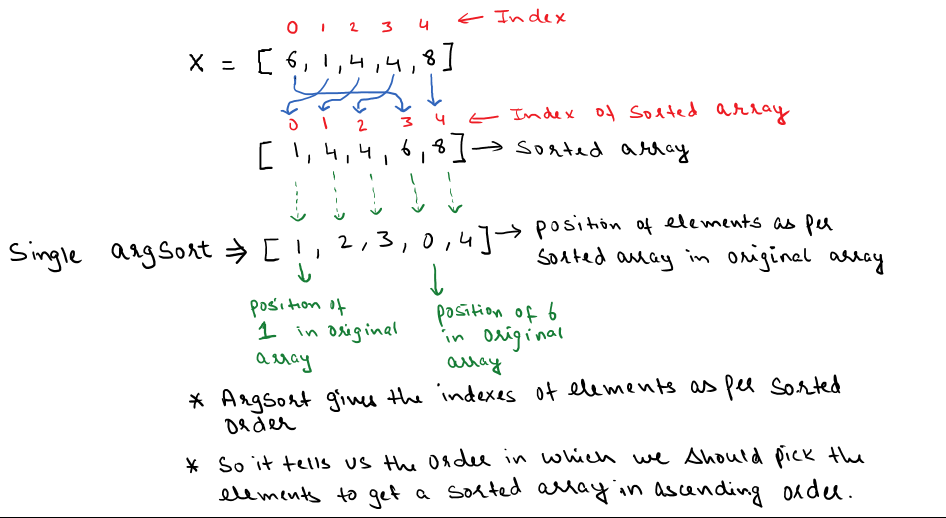 0 1 2 3 4 ← Index
X = [ 6, 1, 4, 4, 8 ]
0 1 2 3 4 ← Index of Sorted array
[ 1, 4, 4, 6, 8 ] → Sorted array
Single argSort ⇒ [ 1, 2, 3, 0, 4 ] → position of elements as per
sorted array in original array
position of
1 in original
array
position of 6
in original
array
* ArgSort gives the indexes of elements as per sorted
order
* So it tells us the order in which we should pick the
elements to get a sorted array in ascending order.